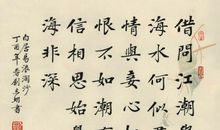 借問江潮與
海水何似君
情與妾心相
恨不如潮有
信相思始覺
海非深
白居易浪淘沙
丁酉年春劉書